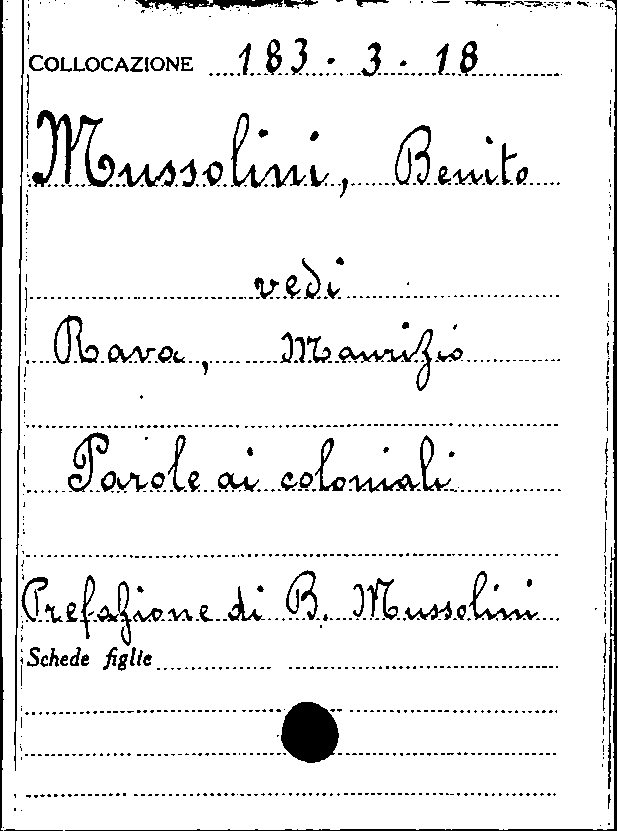 COLLOCAZIONE 183 · 3 · 18
Mussolini, Benito
vedi
Rava, Maurizio
Parole ai coloniali
Prefazione di B. Mussolini
Schede figlie